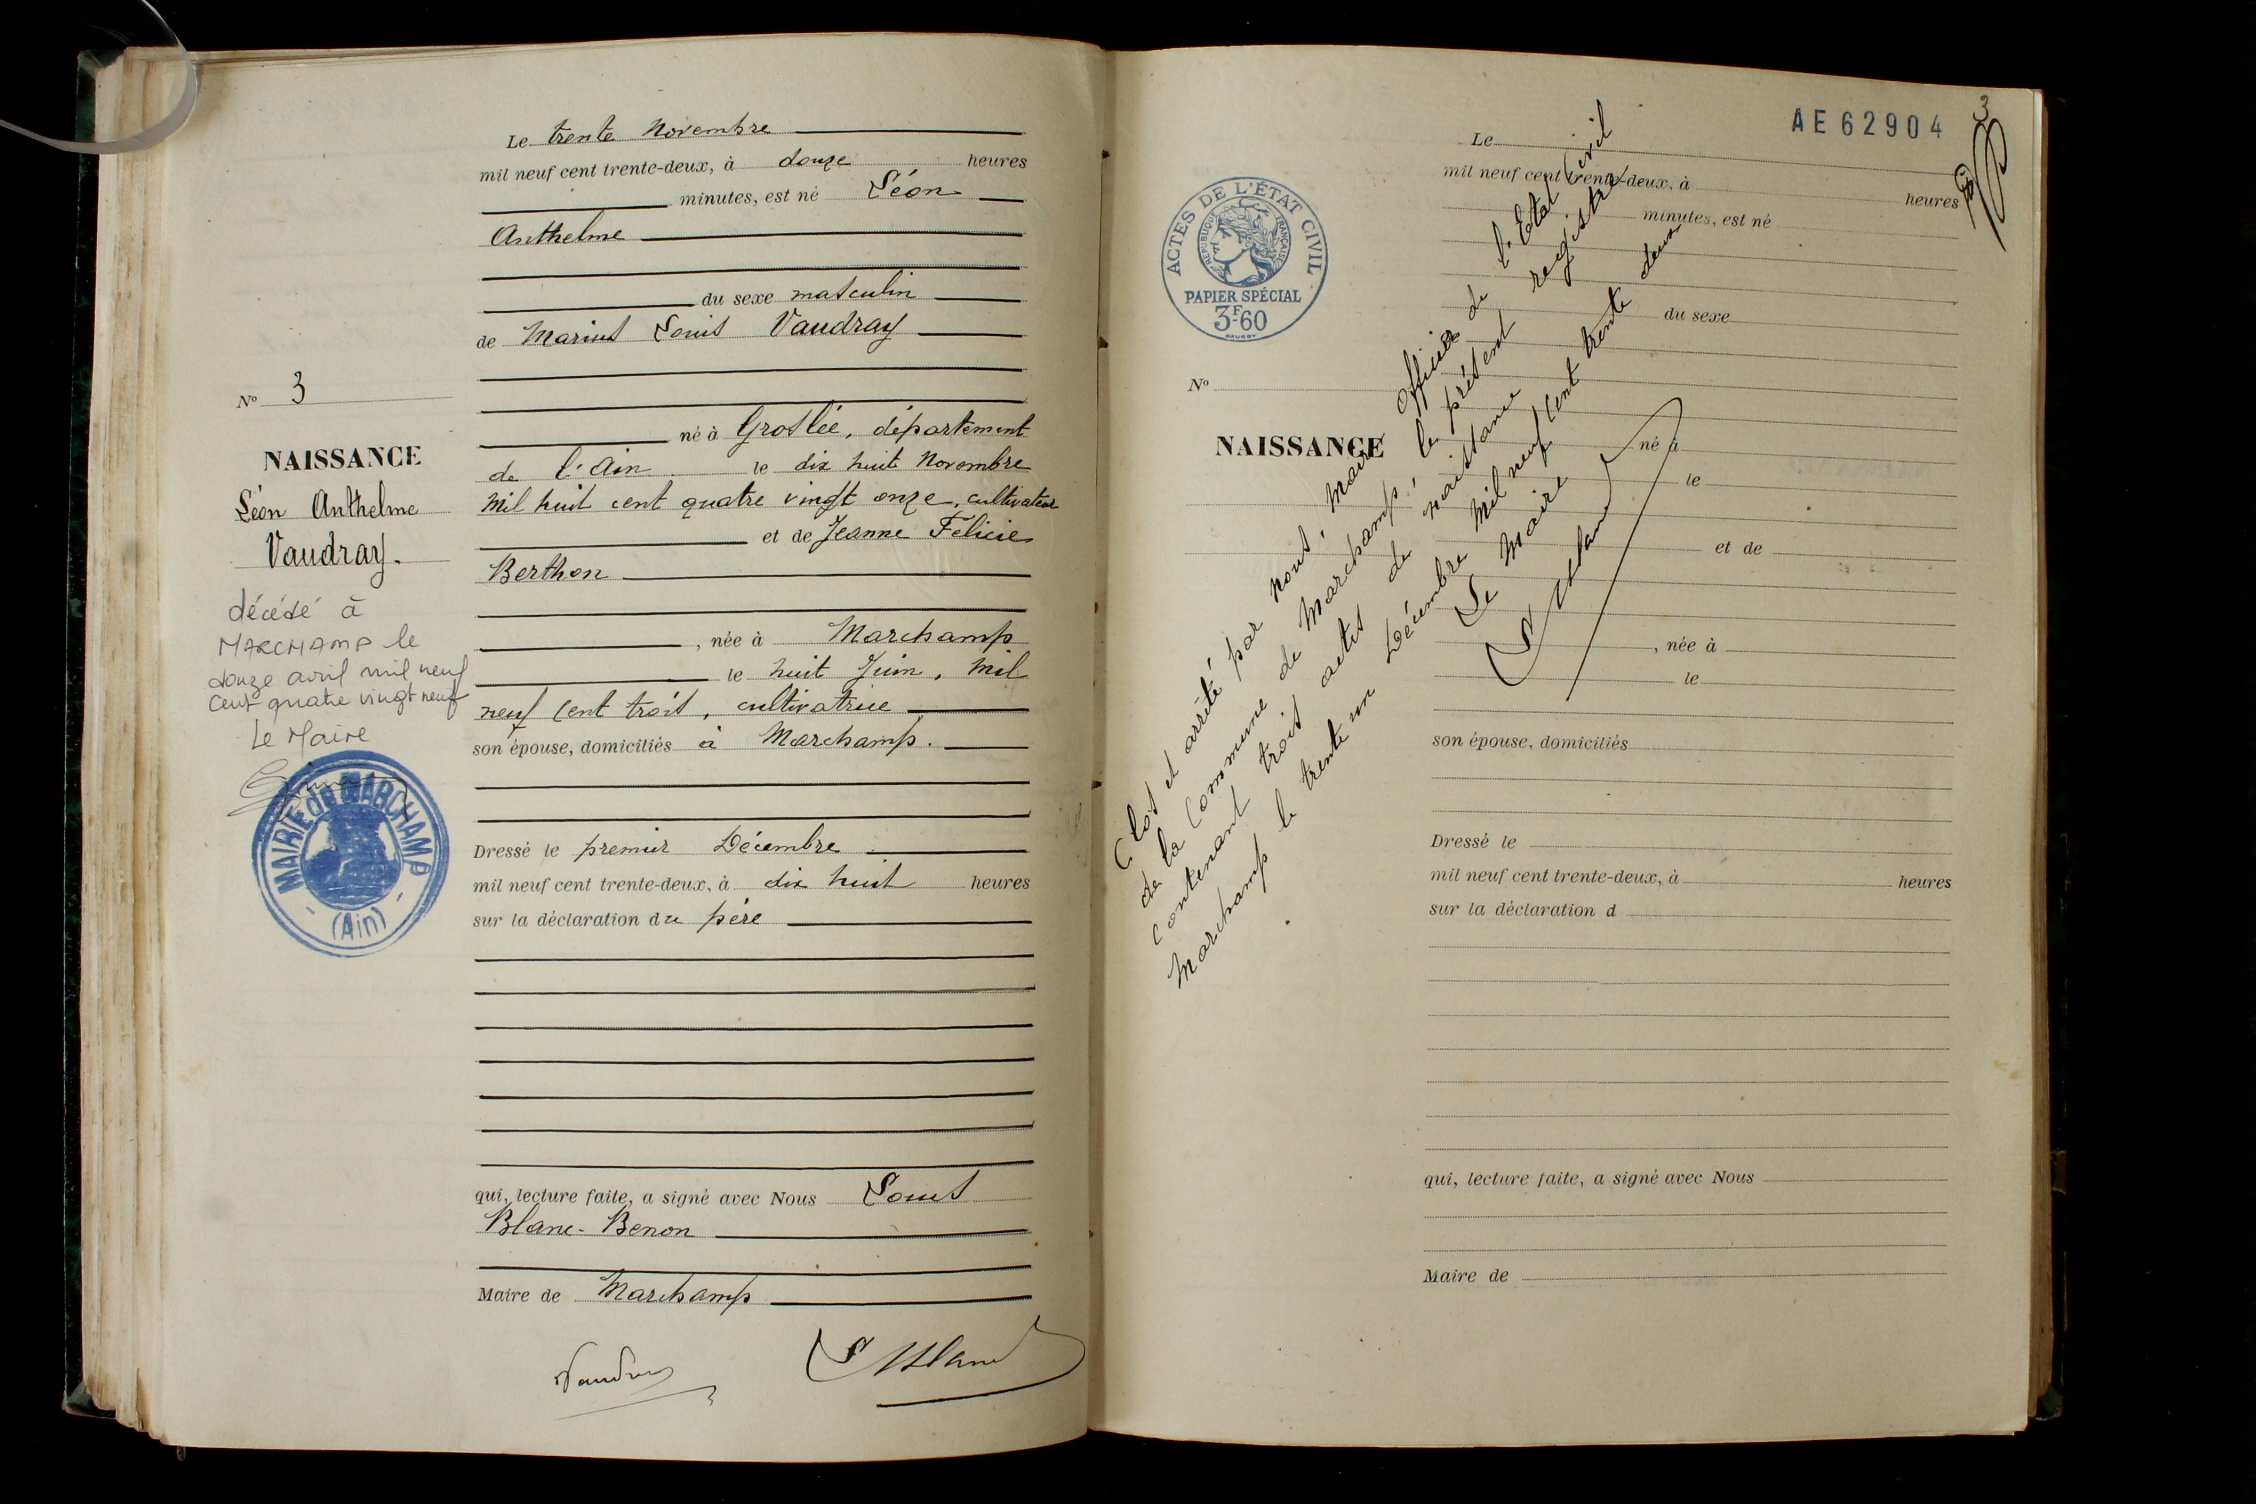 Le trente Novembre
mil neuf cent trente-deux, à douze heures
minutes, est né Léon
Anthelme
du sexe masculin
de Marius Louis Vaudray
né à Groslée, département
de l'Ain le dix huit Novembre
mil huit cent quatre vingt onze, cultivateur
et de Jeanne Félicie
Berthon
, née à Marchamp
le huit Juin, mil
neuf cent trois, cultivatrice
son épouse, domiciliés à Marchamp.
Dressé le premier Décembre
mil neuf cent trente-deux, à dix huit heures
sur la déclaration du père
qui, lecture faite, a signé avec Nous Louis
Blanc-Benon
Maire de Marchamp
Vaudray
No 3
NAISSANCE
Léon Anthelme
Vaudray.
décédé à
MARCHAMP le
douze avril mil neuf
cent quatre vingt neuf
Le Maire
MAIRIE de MARCHAMP
(Ain)
AE 62904
3
ACTES DE L'ÉTAT CIVIL
RÉPUBLIQUE FRANÇAISE
PAPIER SPÉCIAL
3F.60
No
NAISSANCE
Le
mil neuf cent trente-deux, à
heures
minutes, est né
du sexe
né à
le
et de
, née à
le
son épouse, domiciliés
Dressé le
mil neuf cent trente-deux, à heures
sur la déclaration d
qui, lecture faite, a signé avec Nous
Maire de
Clos et arrêté par nous, Maire officier de l'Etat Civil
de la Commune de Marchamp, le présent registre
contenant trois actes de naissance
Marchamp le trente un Décembre mil neuf cent trente deux
Le Maire